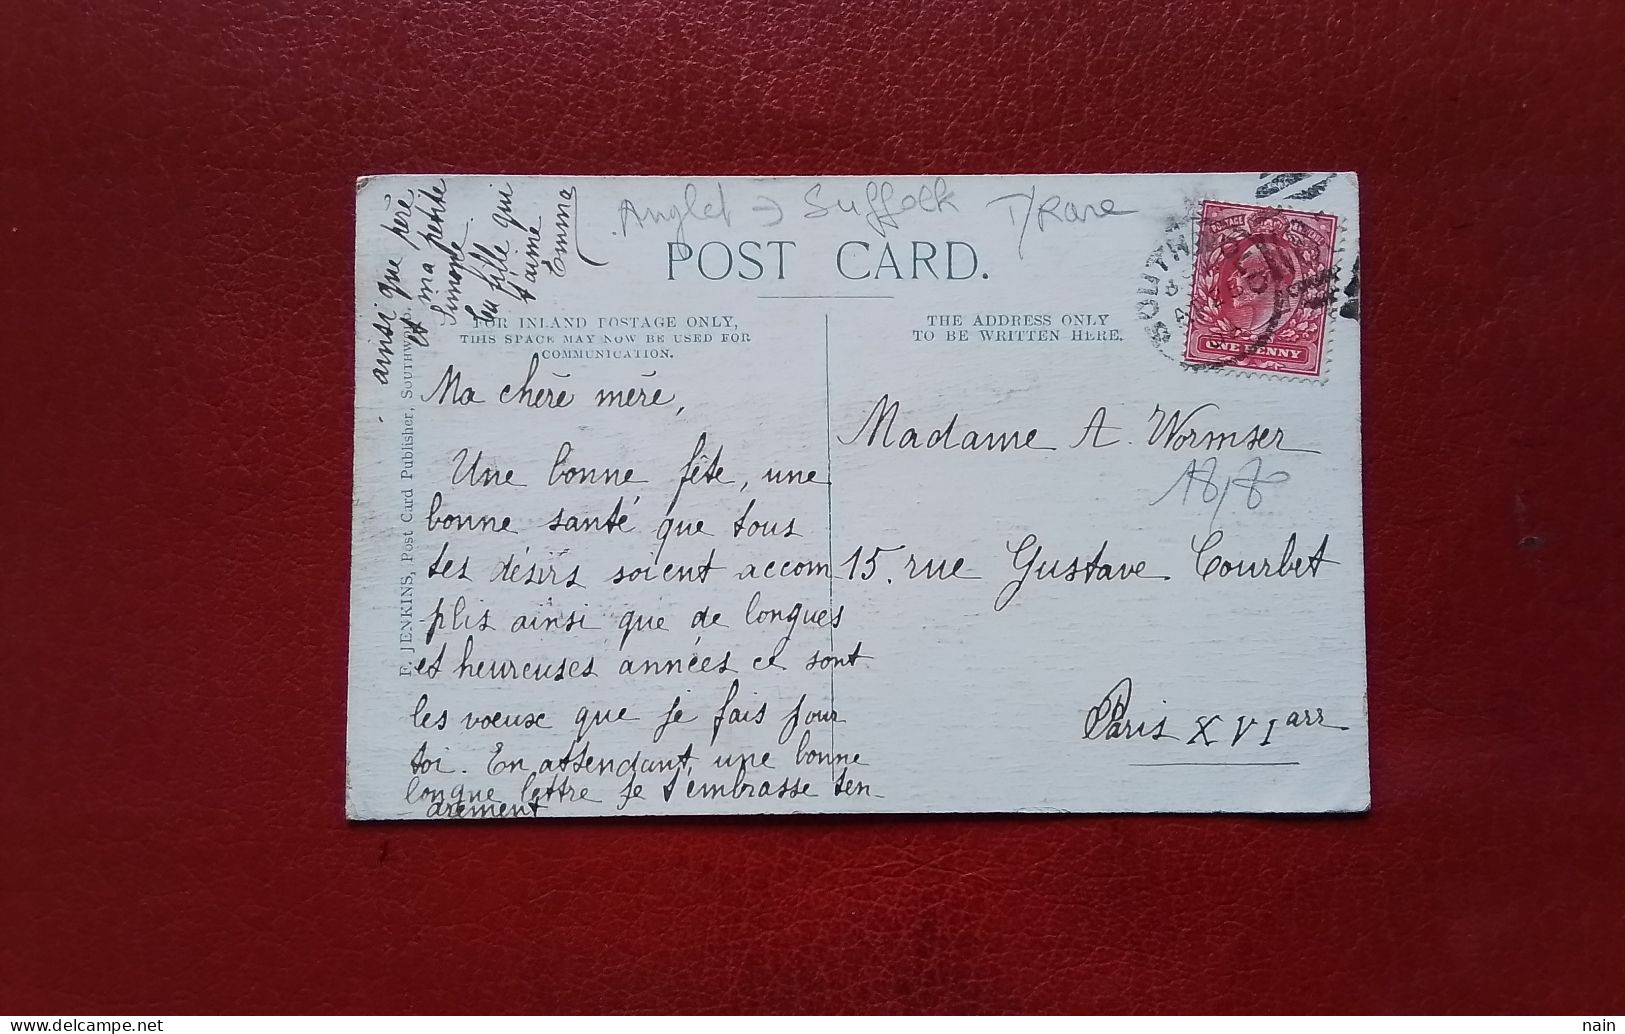 Anglet → Suffolk T/Rare
POST CARD.
FOR INLAND POSTAGE ONLY,
THIS SPACE MAY NOW BE USED FOR
COMMUNICATION.
THE ADDRESS ONLY
TO BE WRITTEN HERE.
ONE PENNY
F. JENKINS, Post Card Publisher, SOUTHWOLD.
Ma chère mère,
Une bonne fête, une
bonne santé que tous
tes désirs soient accom
plis ainsi que de longues
et heureuses années ce sont
les voeux que je fais pour
toi. En attendant, une bonne
longue lettre je t'embrasse ten-
drement
ainsi que père
et ma petite
Simone.
Ta fille qui
t'aime
Emma
Madame A. Wormser
18/80
15. rue Gustave Courbet
Paris XVI arr
nain